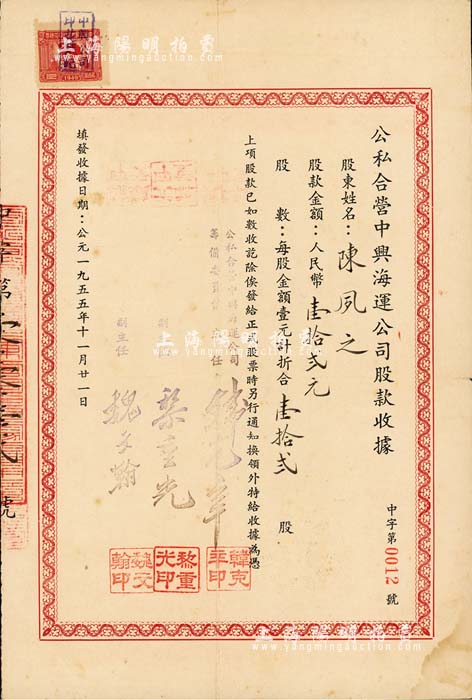 公私合營中興海運公司股款收據
中字第0012號
股東姓名：陳夙之
股款金額：人民幣壹拾弍元
股　　數：每股金額壹元計折合壹拾弍　股
上項股款已如數收訖除俟發給正式股票時另行通知換領外特給收據為憑
公私合營中興海運公司
籌備委員會
主任
副主任
黎重光
副主任
魏文翰
韓克年印
黎重光印
魏文翰印
填發收據日期：公元一九五五年十一月廿一日
中字第
號
1949
上海陽明拍賣
www.yangmingauction.com
上海陽明拍賣
www.yangmingauction.com
上海陽明拍賣
www.yangmingauction.com